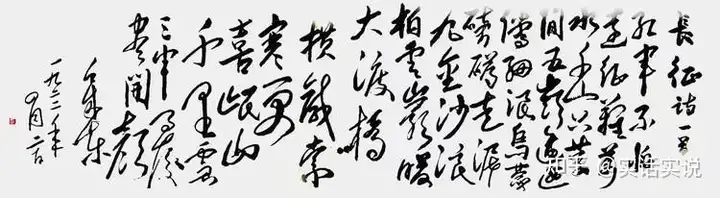 長征詩一首
紅軍不怕
遠征難萬
水千山只等
閒五嶺逶迤
騰細浪烏蒙
磅礴走泥
丸金沙浪
拍雲崖暖
大渡橋
橫鐵索
寒更
喜岷山
千里雪
三軍過後
盡開顏
毛澤東
一九六二年
四月二十日
知乎 @实话实说